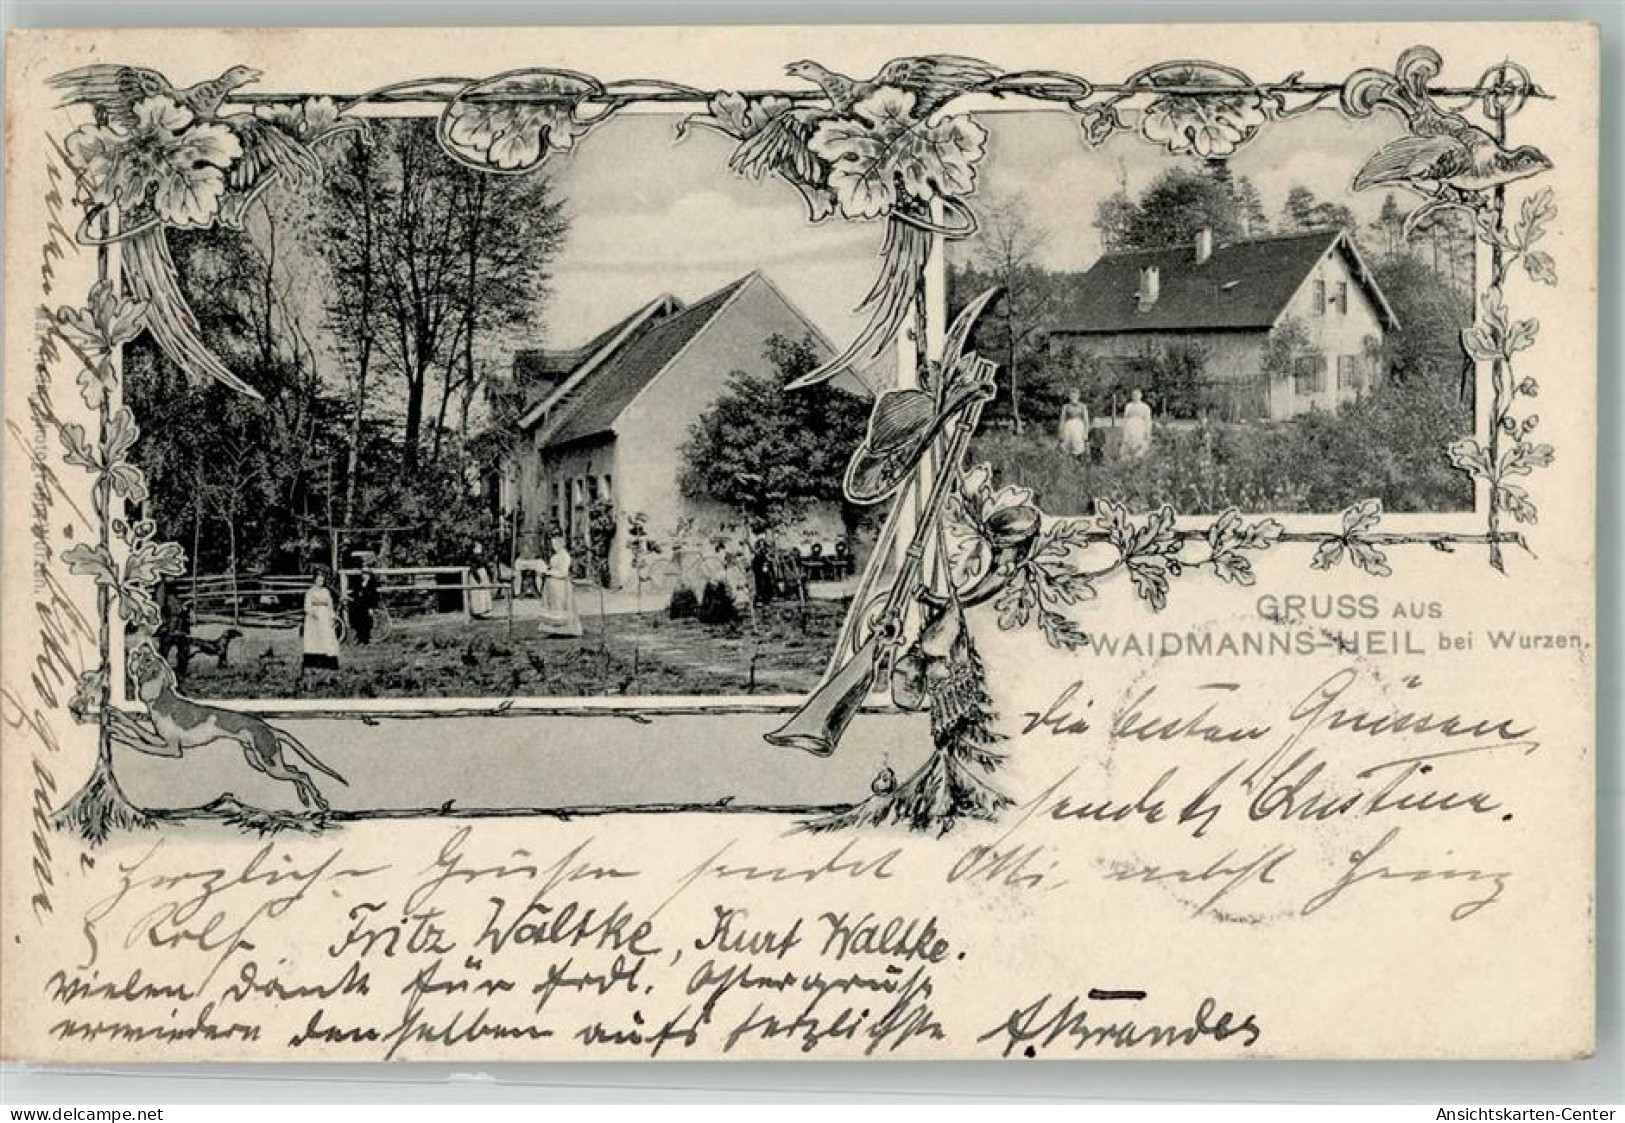 GRUSS AUS
WAIDMANNS-HEIL bei Wurzen.
Die besten Grüssen
sendet Christine.
Herzliche Grüsse sendet Otti, nebst Heinz
Rolf Fritz Waltke, Kurt Waltke.
Vielen Dank für frdl. Ostergruß
erwiedern denselben aufs herzlichste A. Brandes
akpool.de
Ansichtskarten-Center